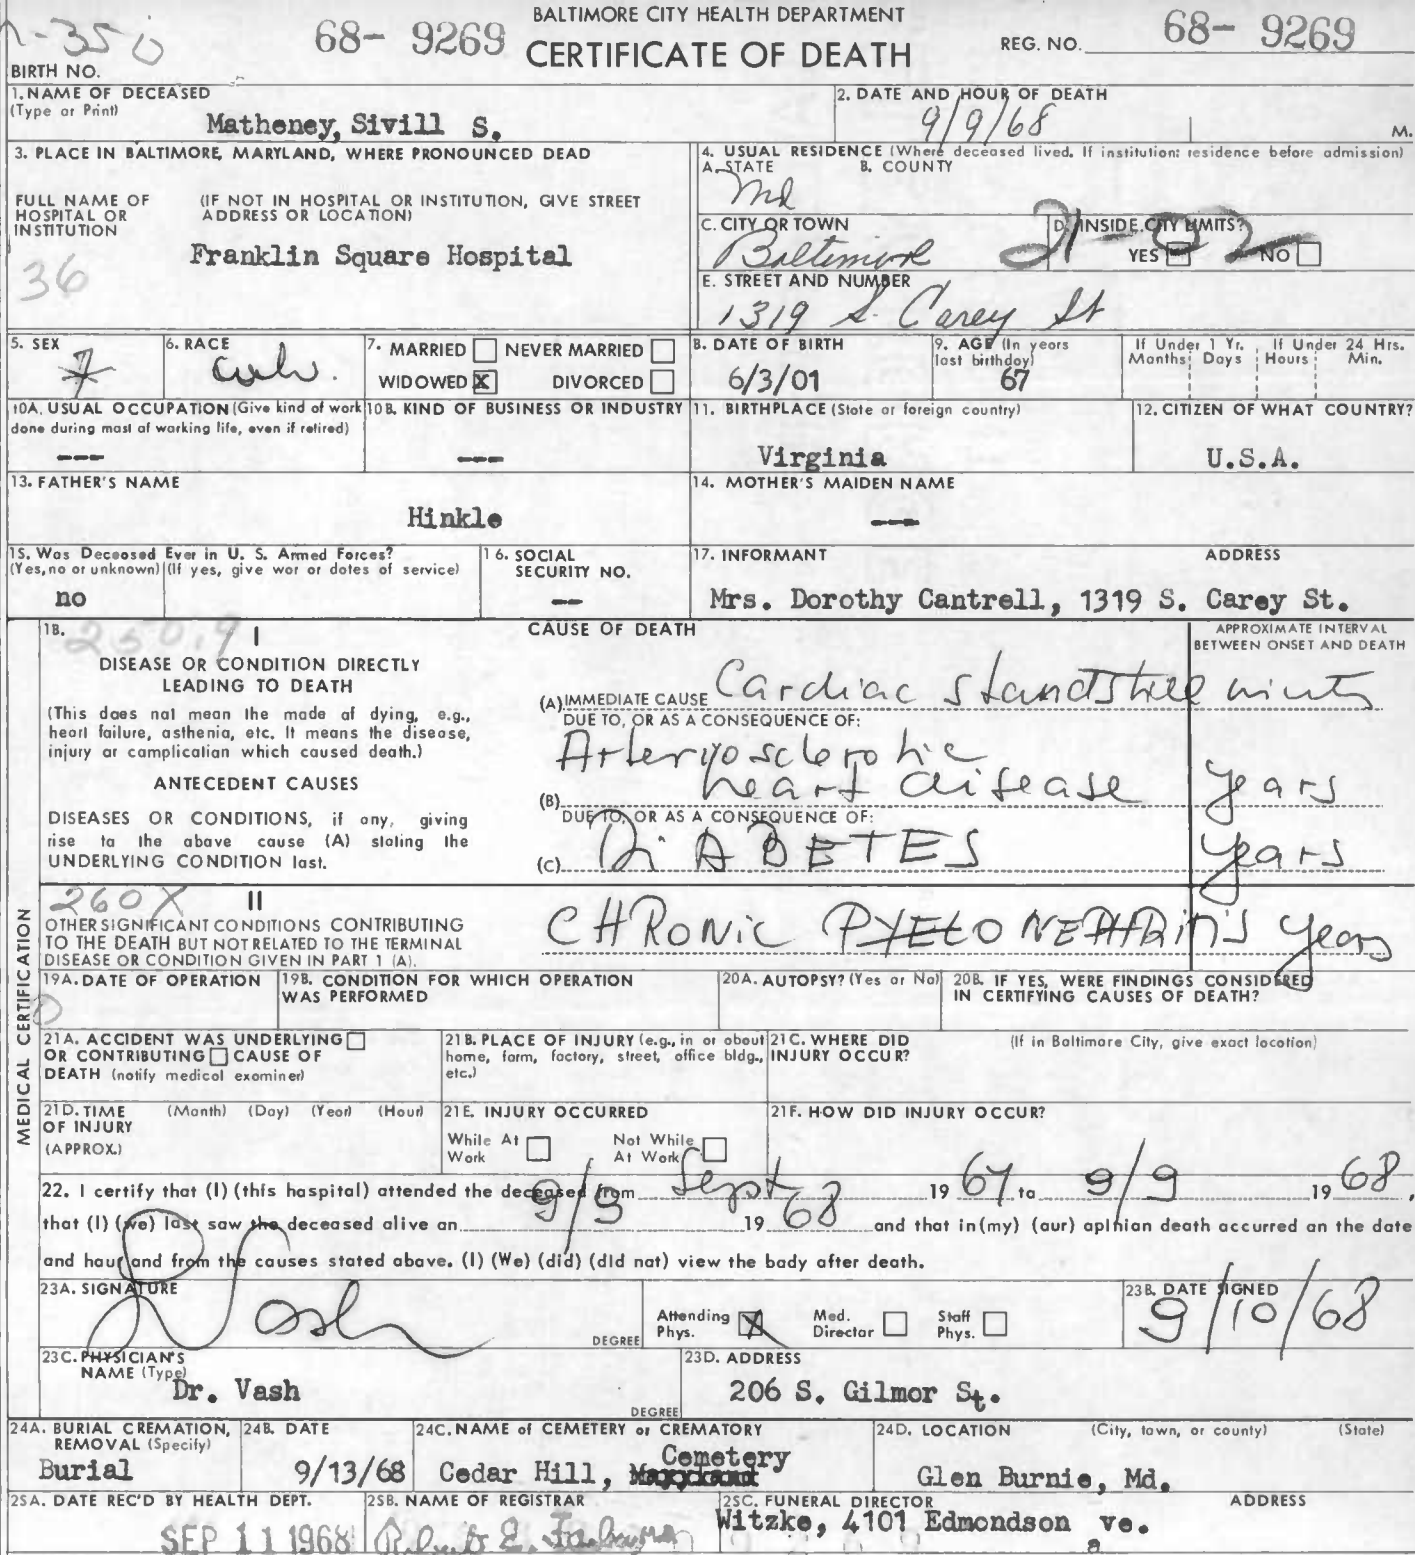 BALTIMORE CITY HEALTH DEPARTMENT
68- 9269 CERTIFICATE OF DEATH REG. NO. 68- 9269
BIRTH NO.
1. NAME OF DECEASED
(Type or Print)
Matheney, Sivill S.
2. DATE AND HOUR OF DEATH
9/9/68 M.
3. PLACE IN BALTIMORE, MARYLAND, WHERE PRONOUNCED DEAD
FULL NAME OF HOSPITAL OR INSTITUTION
(IF NOT IN HOSPITAL OR INSTITUTION, GIVE STREET ADDRESS OR LOCATION)
Franklin Square Hospital
36
4. USUAL RESIDENCE (Where deceased lived. If institution: residence before admission)
A. STATE B. COUNTY
Md
C. CITY OR TOWN
Baltimore
D. INSIDE CITY LIMITS?
YES NO
21-02
E. STREET AND NUMBER
1319 S. Carey St
5. SEX
6. RACE
7. MARRIED NEVER MARRIED
WIDOWED X DIVORCED
8. DATE OF BIRTH
6/3/01
9. AGE (In years last birthday)
67
If Under 1 Yr. If Under 24 Hrs.
Months Days Hours Min.
10A. USUAL OCCUPATION (Give kind of work done during most of working life, even if retired)
---
10B. KIND OF BUSINESS OR INDUSTRY
---
11. BIRTHPLACE (State or foreign country)
Virginia
12. CITIZEN OF WHAT COUNTRY?
U.S.A.
13. FATHER'S NAME
Hinkle
14. MOTHER'S MAIDEN NAME
---
15. Was Deceased Ever in U. S. Armed Forces?
(Yes, no or unknown) (If yes, give war or dates of service)
no
16. SOCIAL SECURITY NO.
--
17. INFORMANT ADDRESS
Mrs. Dorothy Cantrell, 1319 S. Carey St.
MEDICAL CERTIFICATION
18. 250.9 I
CAUSE OF DEATH
APPROXIMATE INTERVAL BETWEEN ONSET AND DEATH
DISEASE OR CONDITION DIRECTLY LEADING TO DEATH
(This does not mean the mode of dying, e.g., heart failure, asthenia, etc. It means the disease, injury or complication which caused death.)
ANTECEDENT CAUSES
DISEASES OR CONDITIONS, if any, giving rise to the above cause (A) stating the UNDERLYING CONDITION last.
(A) IMMEDIATE CAUSE Cardiac standstill
DUE TO, OR AS A CONSEQUENCE OF:
Arteryosclerotic
(B) heart disease years
DUE TO, OR AS A CONSEQUENCE OF:
(C) DiABETES years
260X II
OTHER SIGNIFICANT CONDITIONS CONTRIBUTING TO THE DEATH BUT NOT RELATED TO THE TERMINAL DISEASE OR CONDITION GIVEN IN PART 1 (A).
CHRONIC PYELONEPHRITIS years
19A. DATE OF OPERATION
19B. CONDITION FOR WHICH OPERATION WAS PERFORMED
20A. AUTOPSY? (Yes or No)
20B. IF YES, WERE FINDINGS CONSIDERED IN CERTIFYING CAUSES OF DEATH?
21A. ACCIDENT WAS UNDERLYING OR CONTRIBUTING CAUSE OF DEATH (notify medical examiner)
21B. PLACE OF INJURY (e.g., in or about home, farm, factory, street, office bldg., etc.)
21C. WHERE DID INJURY OCCUR?
(If in Baltimore City, give exact location)
21D. TIME OF INJURY (APPROX.)
(Month) (Day) (Year) (Hour)
21E. INJURY OCCURRED
While At Work Not While At Work
21F. HOW DID INJURY OCCUR?
22. I certify that (I) (this hospital) attended the deceased from Sept 1967 to 9/9 1968,
that (I) (we) last saw the deceased alive on 9/9 1968 and that in (my) (our) opinion death occurred on the date
and hour and from the causes stated above. (I) (We) (did) (did not) view the body after death.
23A. SIGNATURE
Vash
DEGREE
Attending Phys. X Med. Director Staff Phys.
23B. DATE SIGNED
9/10/68
23C. PHYSICIAN'S NAME (Type)
Dr. Vash
DEGREE
23D. ADDRESS
206 S. Gilmor St.
24A. BURIAL CREMATION, REMOVAL (Specify)
Burial
24B. DATE
9/13/68
24C. NAME of CEMETERY or CREMATORY
Cedar Hill, Cemetery
24D. LOCATION (City, town, or county) (State)
Glen Burnie, Md.
25A. DATE REC'D BY HEALTH DEPT.
SEP 11 1968
25B. NAME OF REGISTRAR
25C. FUNERAL DIRECTOR ADDRESS
Witzke, 4101 Edmondson ve.
a